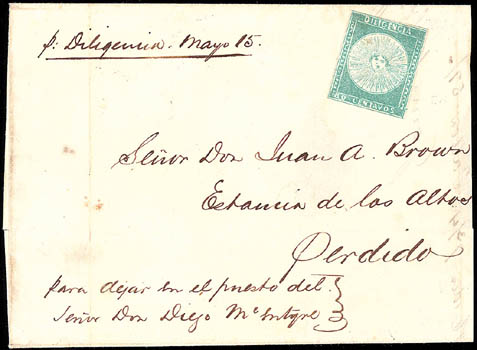 p. Diligencia. Mayo 15.
DILIGENCIA
80 CENTAVOS
Señor Don Juan A. Brown
Estancia de los Altos
Perdido
para dejar en el puesto del
Señor Don Diego McIntyre